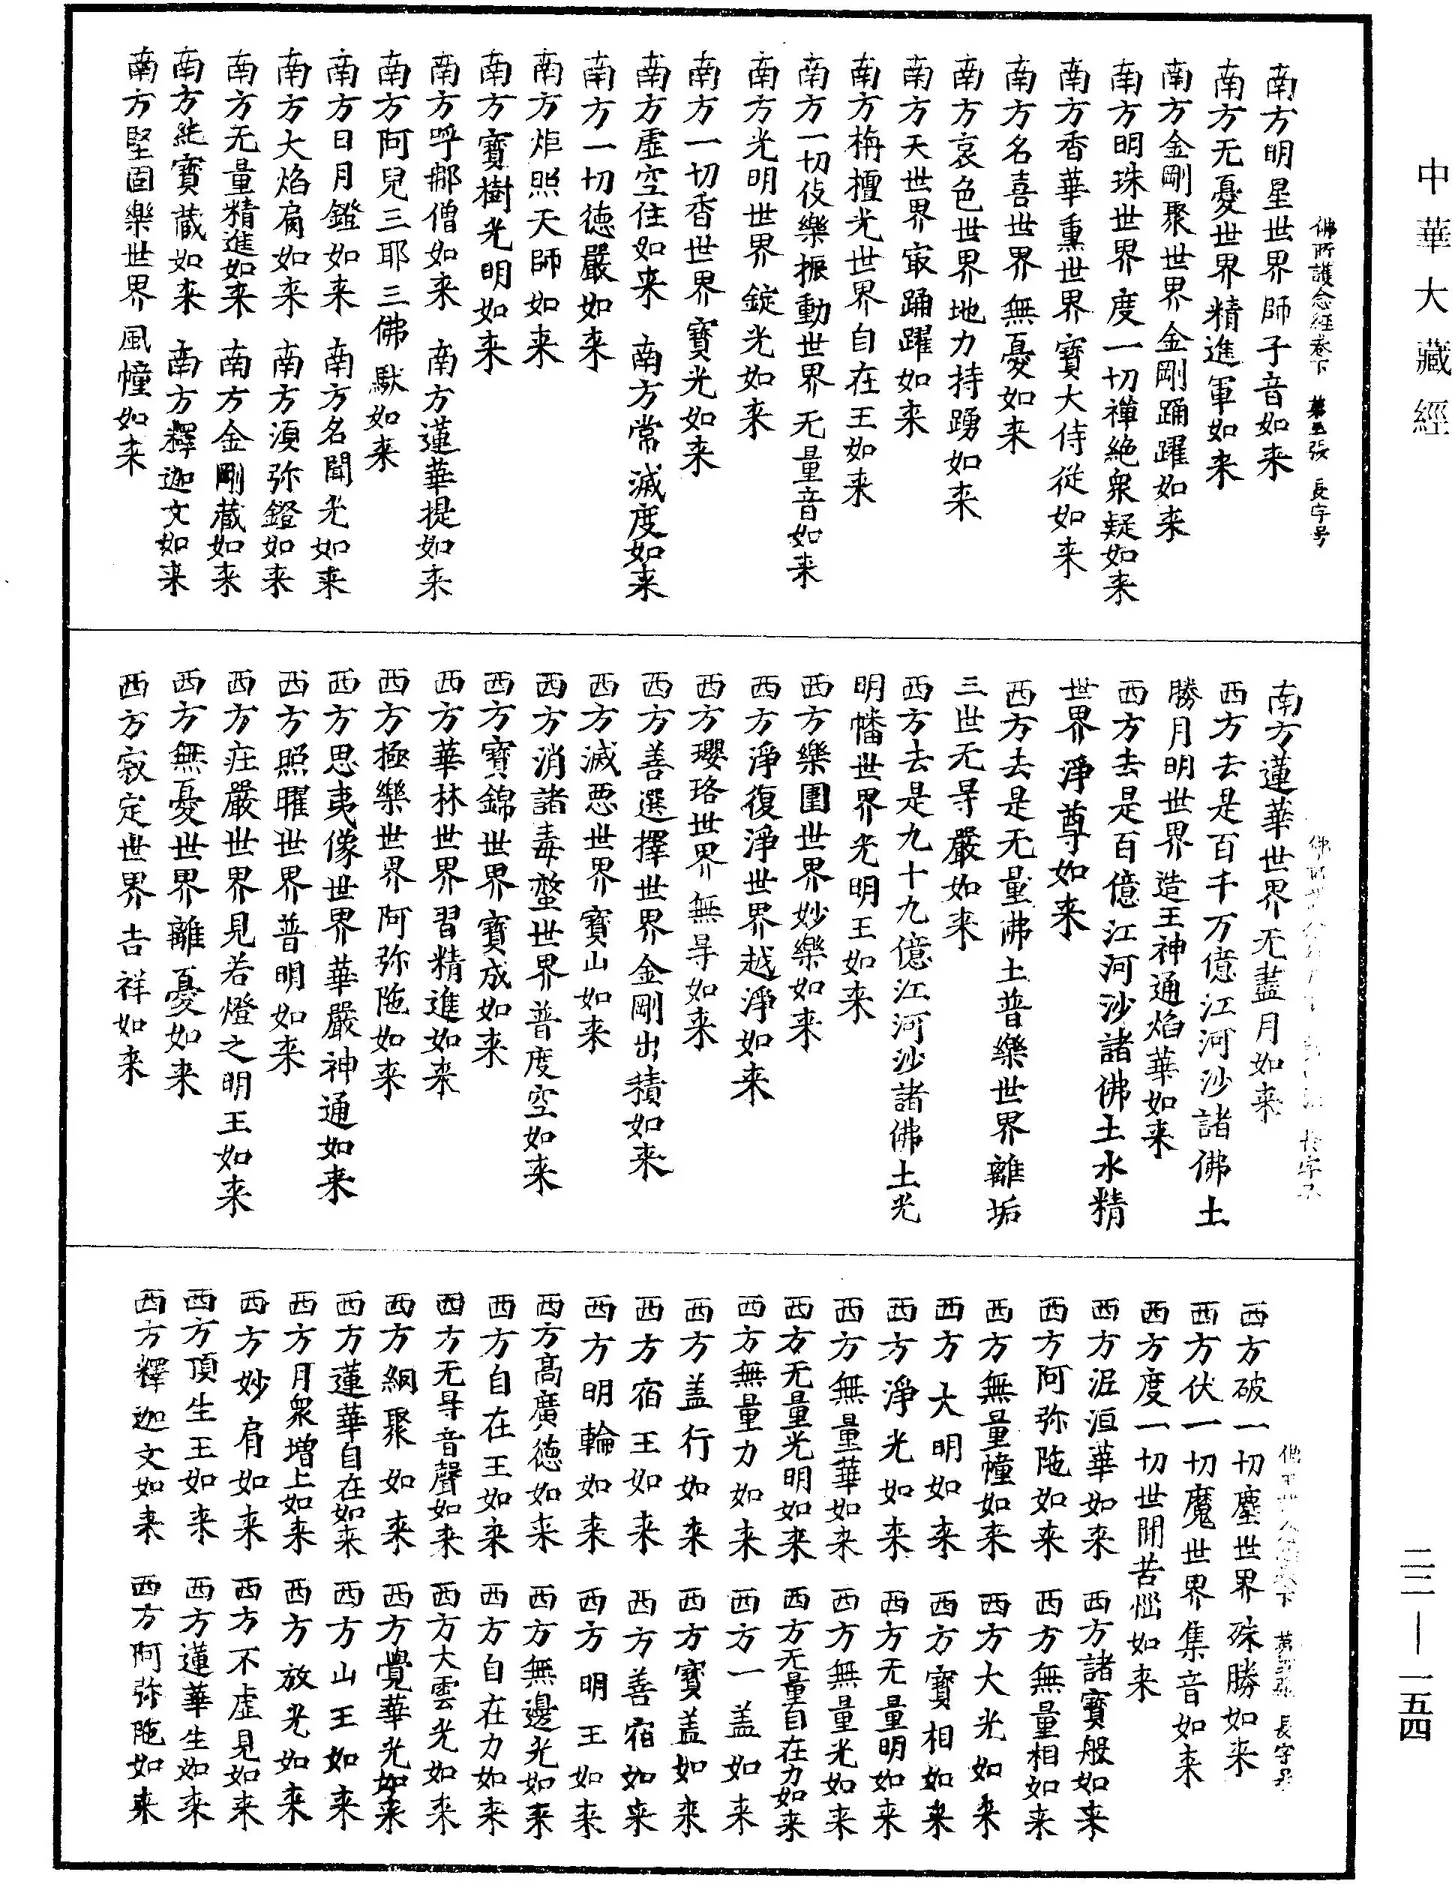 中華大藏經
佛所護念經卷下 第五張 長字号
南方明星世界師子音如来
南方无憂世界精進軍如来
南方金剛聚世界金剛踊躍如来
南方明珠世界度一切禪絶衆疑如来
南方香華熏世界寳大侍從如来
南方名喜世界無憂如来
南方哀色世界地力持踴如来
南方天世界冣踊躍如来
南方栴檀光世界自在王如来
南方一切伎樂振動世界无量音如来
南方光明世界錠光如来
南方一切香世界寳光如来
南方虚空住如来 南方常滅度如来
南方一切德嚴如来
南方炬照天師如来
南方寳樹光明如来
南方呼郍僧如来 南方蓮華提如来
南方阿兒三耶三佛馱如来
南方日月鐙如来 南方名聞光如来
南方大焰肩如来 南方湏弥鐙如来
南方无量精進如来 南方金剛藏如来
南方純寳藏如来 南方釋迦文如来
南方堅固樂世界風幢如来
南方蓮華世界无盡月如来
西方去是百千万億江河沙諸佛土
勝月明世界造王神通焰華如来
西方去是百億江河沙諸佛土水精
世界淨尊如来
西方去是无量佛土普樂世界離垢
三世无㝵嚴如来
西方去是九十九億江河沙諸佛土光
明幡世界光明王如来
西方樂園世界妙樂如来
西方淨復淨世界越淨如来
西方瓔珞世界無㝵如来
西方善選擇世界金剛出積如来
西方滅惡世界寳山如来
西方消諸毒螫世界普度空如来
西方寳錦世界寳成如来
西方華林世界習精進如来
西方極樂世界阿弥陁如来
西方思夷像世界華嚴神通如来
西方照曜世界普明如来
西方庄嚴世界見若燈之明王如来
西方無憂世界離憂如来
西方寂定世界吉祥如来
西方破一切塵世界殊勝如来
西方伏一切魔世界集音如来
西方度一切世間苦惱如来
西方泥洹華如来 西方諸寳般如来
西方阿弥陁如来 西方無量相如来
西方無量幢如来 西方大光如来
西方大明如来 西方寳相如来
西方淨光如来 西方无量明如来
西方無量華如来 西方無量光如来
西方无量光明如来 西方无量自在力如来
西方無量力如来 西方一盖如来
西方盖行如来 西方寳盖如来
西方宿王如来 西方善宿如来
西方明輪如来 西方明王如来
西方高廣德如来 西方無邊光如来
西方自在王如来 西方自在力如来
西方无㝵音聲如来 西方大雲光如来
西方綱聚如来 西方覺華光如来
西方蓮華自在如来 西方山王如来
西方月衆增上如来 西方放光如来
西方妙肩如来 西方不虚見如来
西方頂生王如来 西方蓮華生如来
西方釋迦文如来 西方阿弥陁如来
二二—一五四